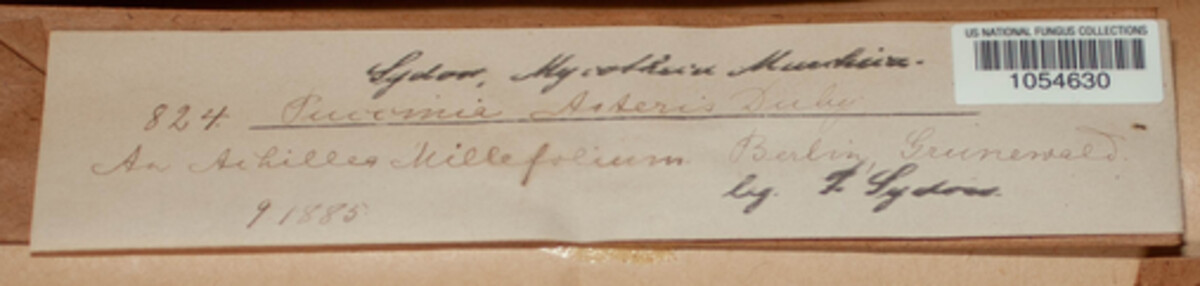 US NATIONAL FUNGUS COLLECTIONS
1054630
Sydow, Mycotheca Marchica.
824. Puccinia Asteris Duby
An Achillea Millefolium Berlin, Grunewald.
leg. P. Sydow.
9 1885